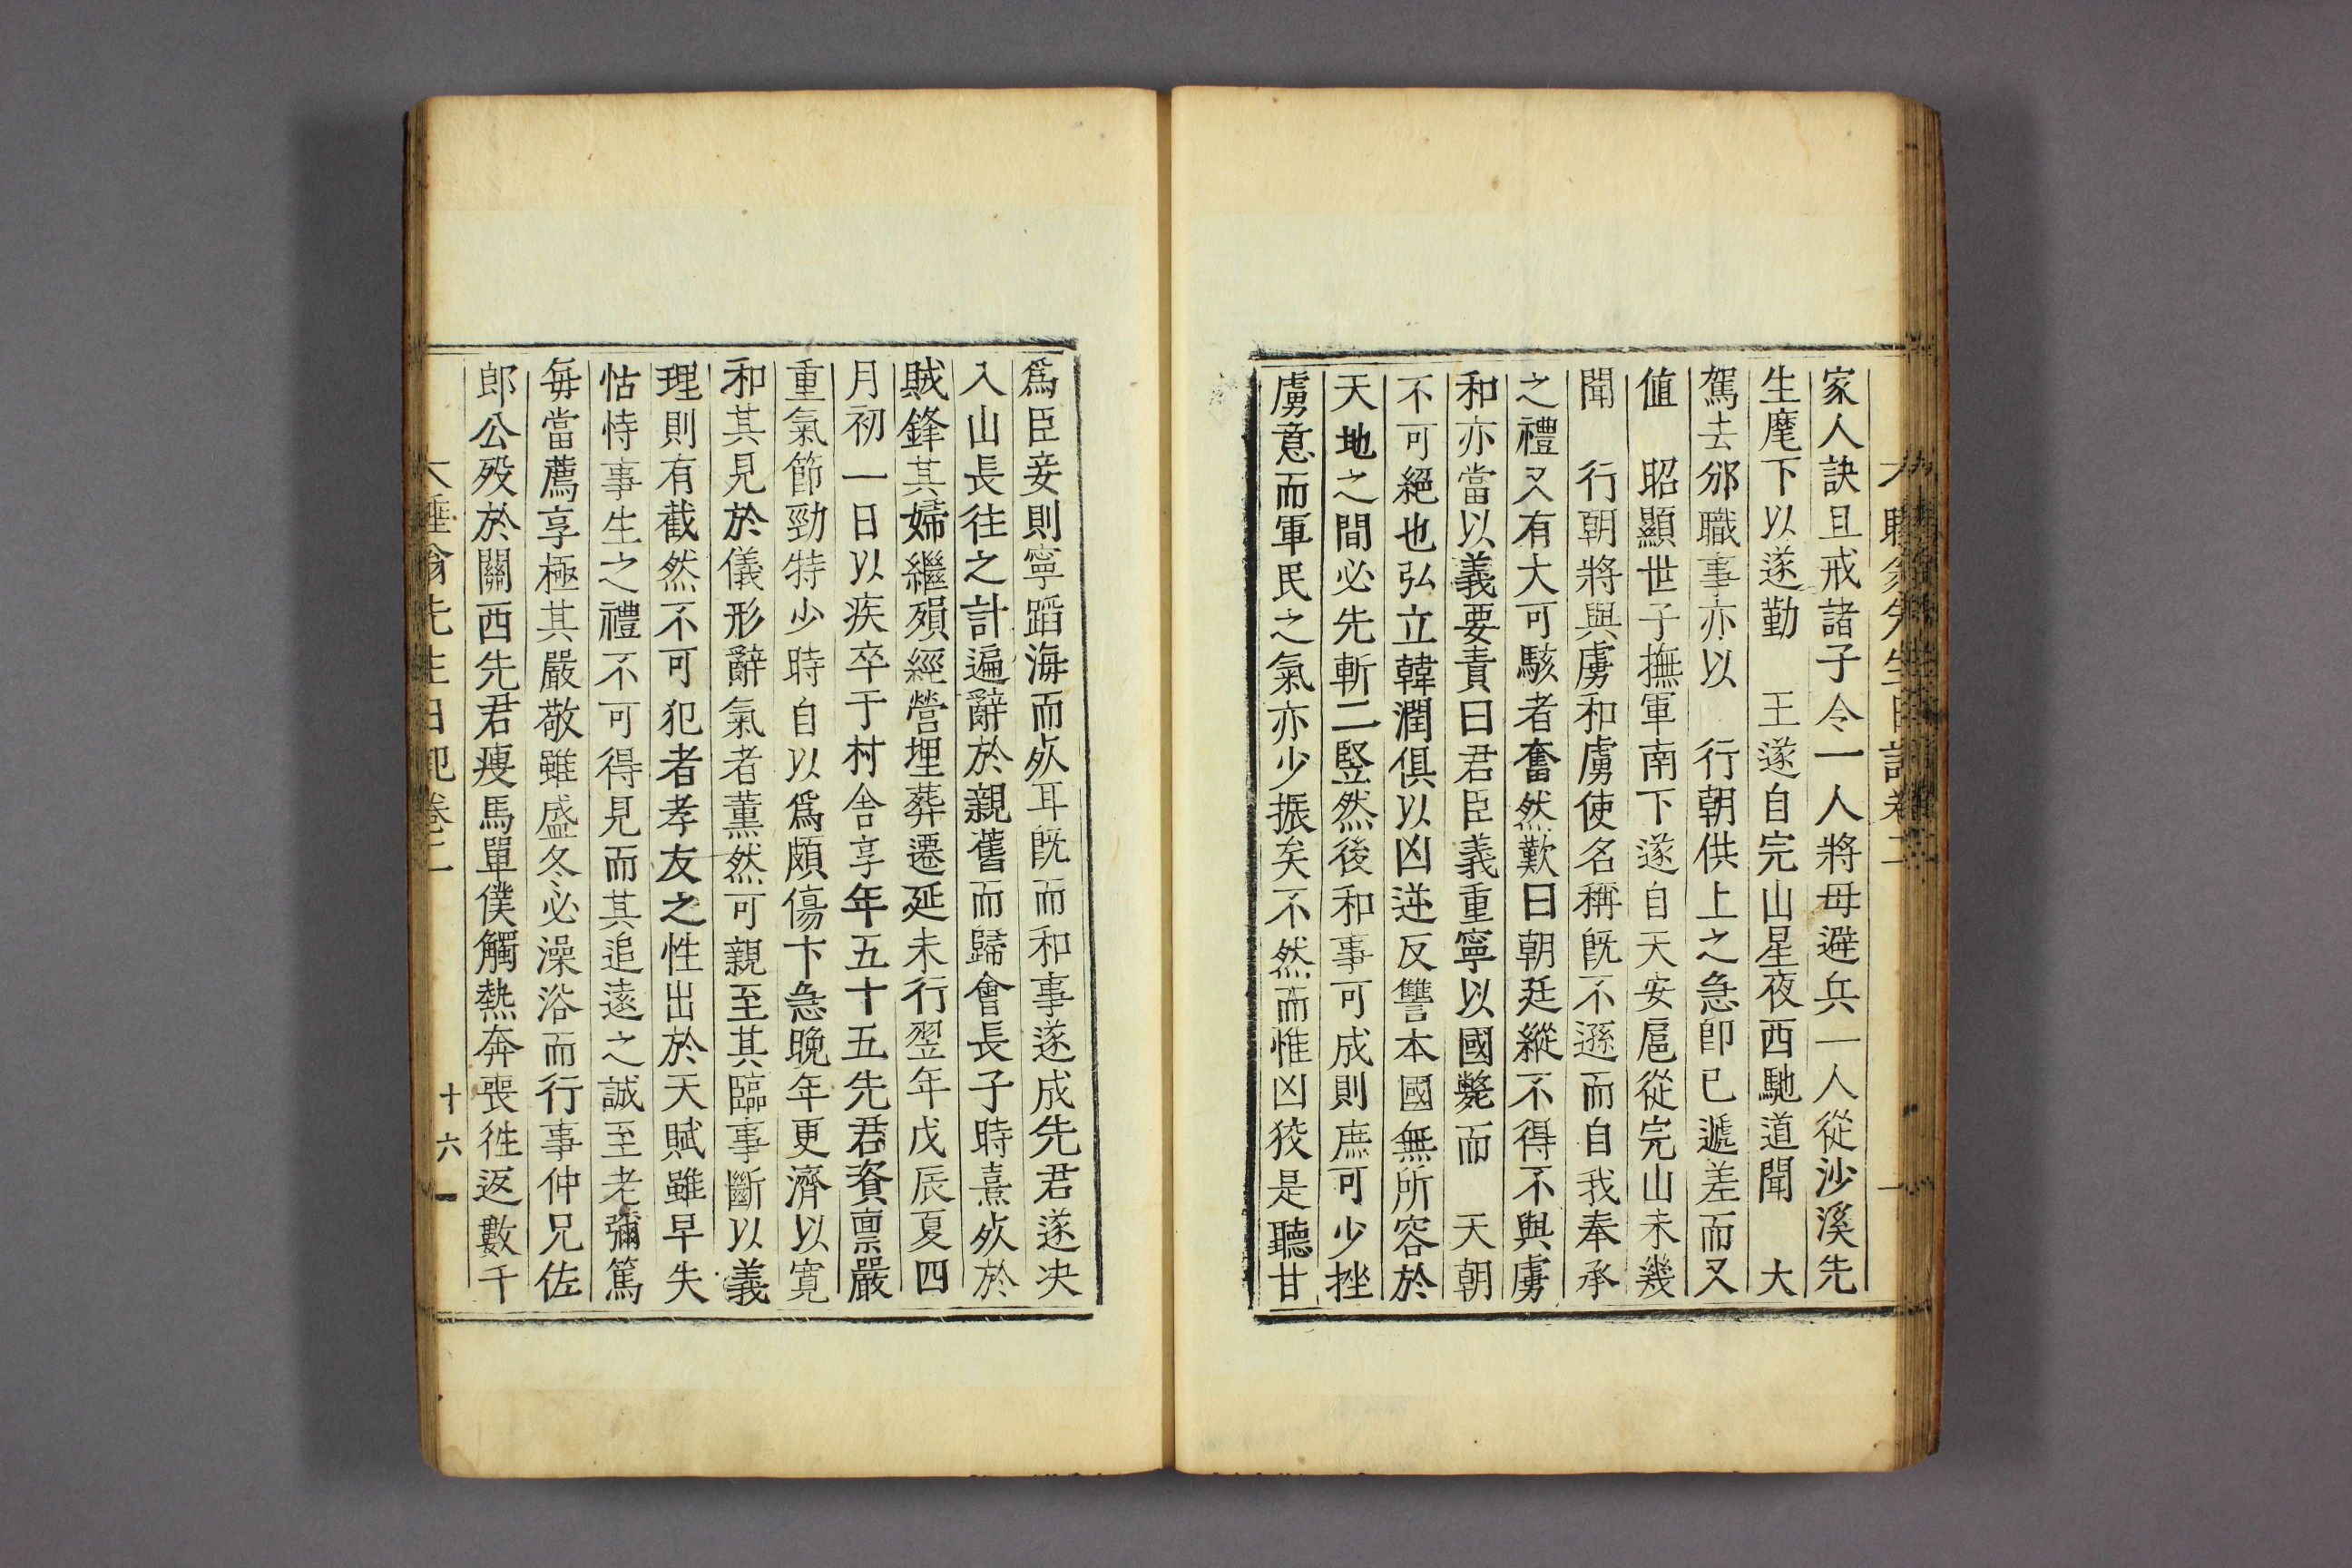 家人訣且戒諸子令一人將母避兵一人從沙溪先
生麾下以遂勤 王遂自完山星夜西馳道聞 大
駕去邠職事亦以 行朝供上之急卽已遞差而又
値 昭顯世子撫軍南下遂自天安扈從完山未幾
聞 行朝將與虜和虜使名稱旣不遜而自我奉承
之禮又有大可駭者奮然歎曰朝廷縱不得不與虜
和亦當以義要責曰君臣義重寧以國斃而 天朝
不可絕也弘立韓潤俱以凶逆反讐本國無所容於
天地之間必先斬二竪然後和事可成則庶可少挫
虜意而軍民之氣亦少振矣不然而惟凶狡是聽甘
爲臣妾則寧蹈海而死耳旣而和事遂成先君遂决
入山長往之計遍辭於親舊而歸會長子時熹死於
賊鋒其婦繼殞經營埋葬遷延未行翌年戊辰夏四
月初一日以疾卒于村舍享年五十五先君資禀嚴
重氣節勁特少時自以爲頗傷卞急晚年更濟以寛
和其見於儀形辭氣者薰然可親至其臨事斷以義
理則有截然不可犯者孝友之性出於天賦雖早失
怙恃事生之禮不可得見而其追遠之誠至老彌篤
每當薦享極其嚴敬雖盛冬必澡浴而行事仲兄佐
郎公歿於關西先君瘦馬單僕觸熱奔喪徃返數千
睡翁先生日記卷二
十六